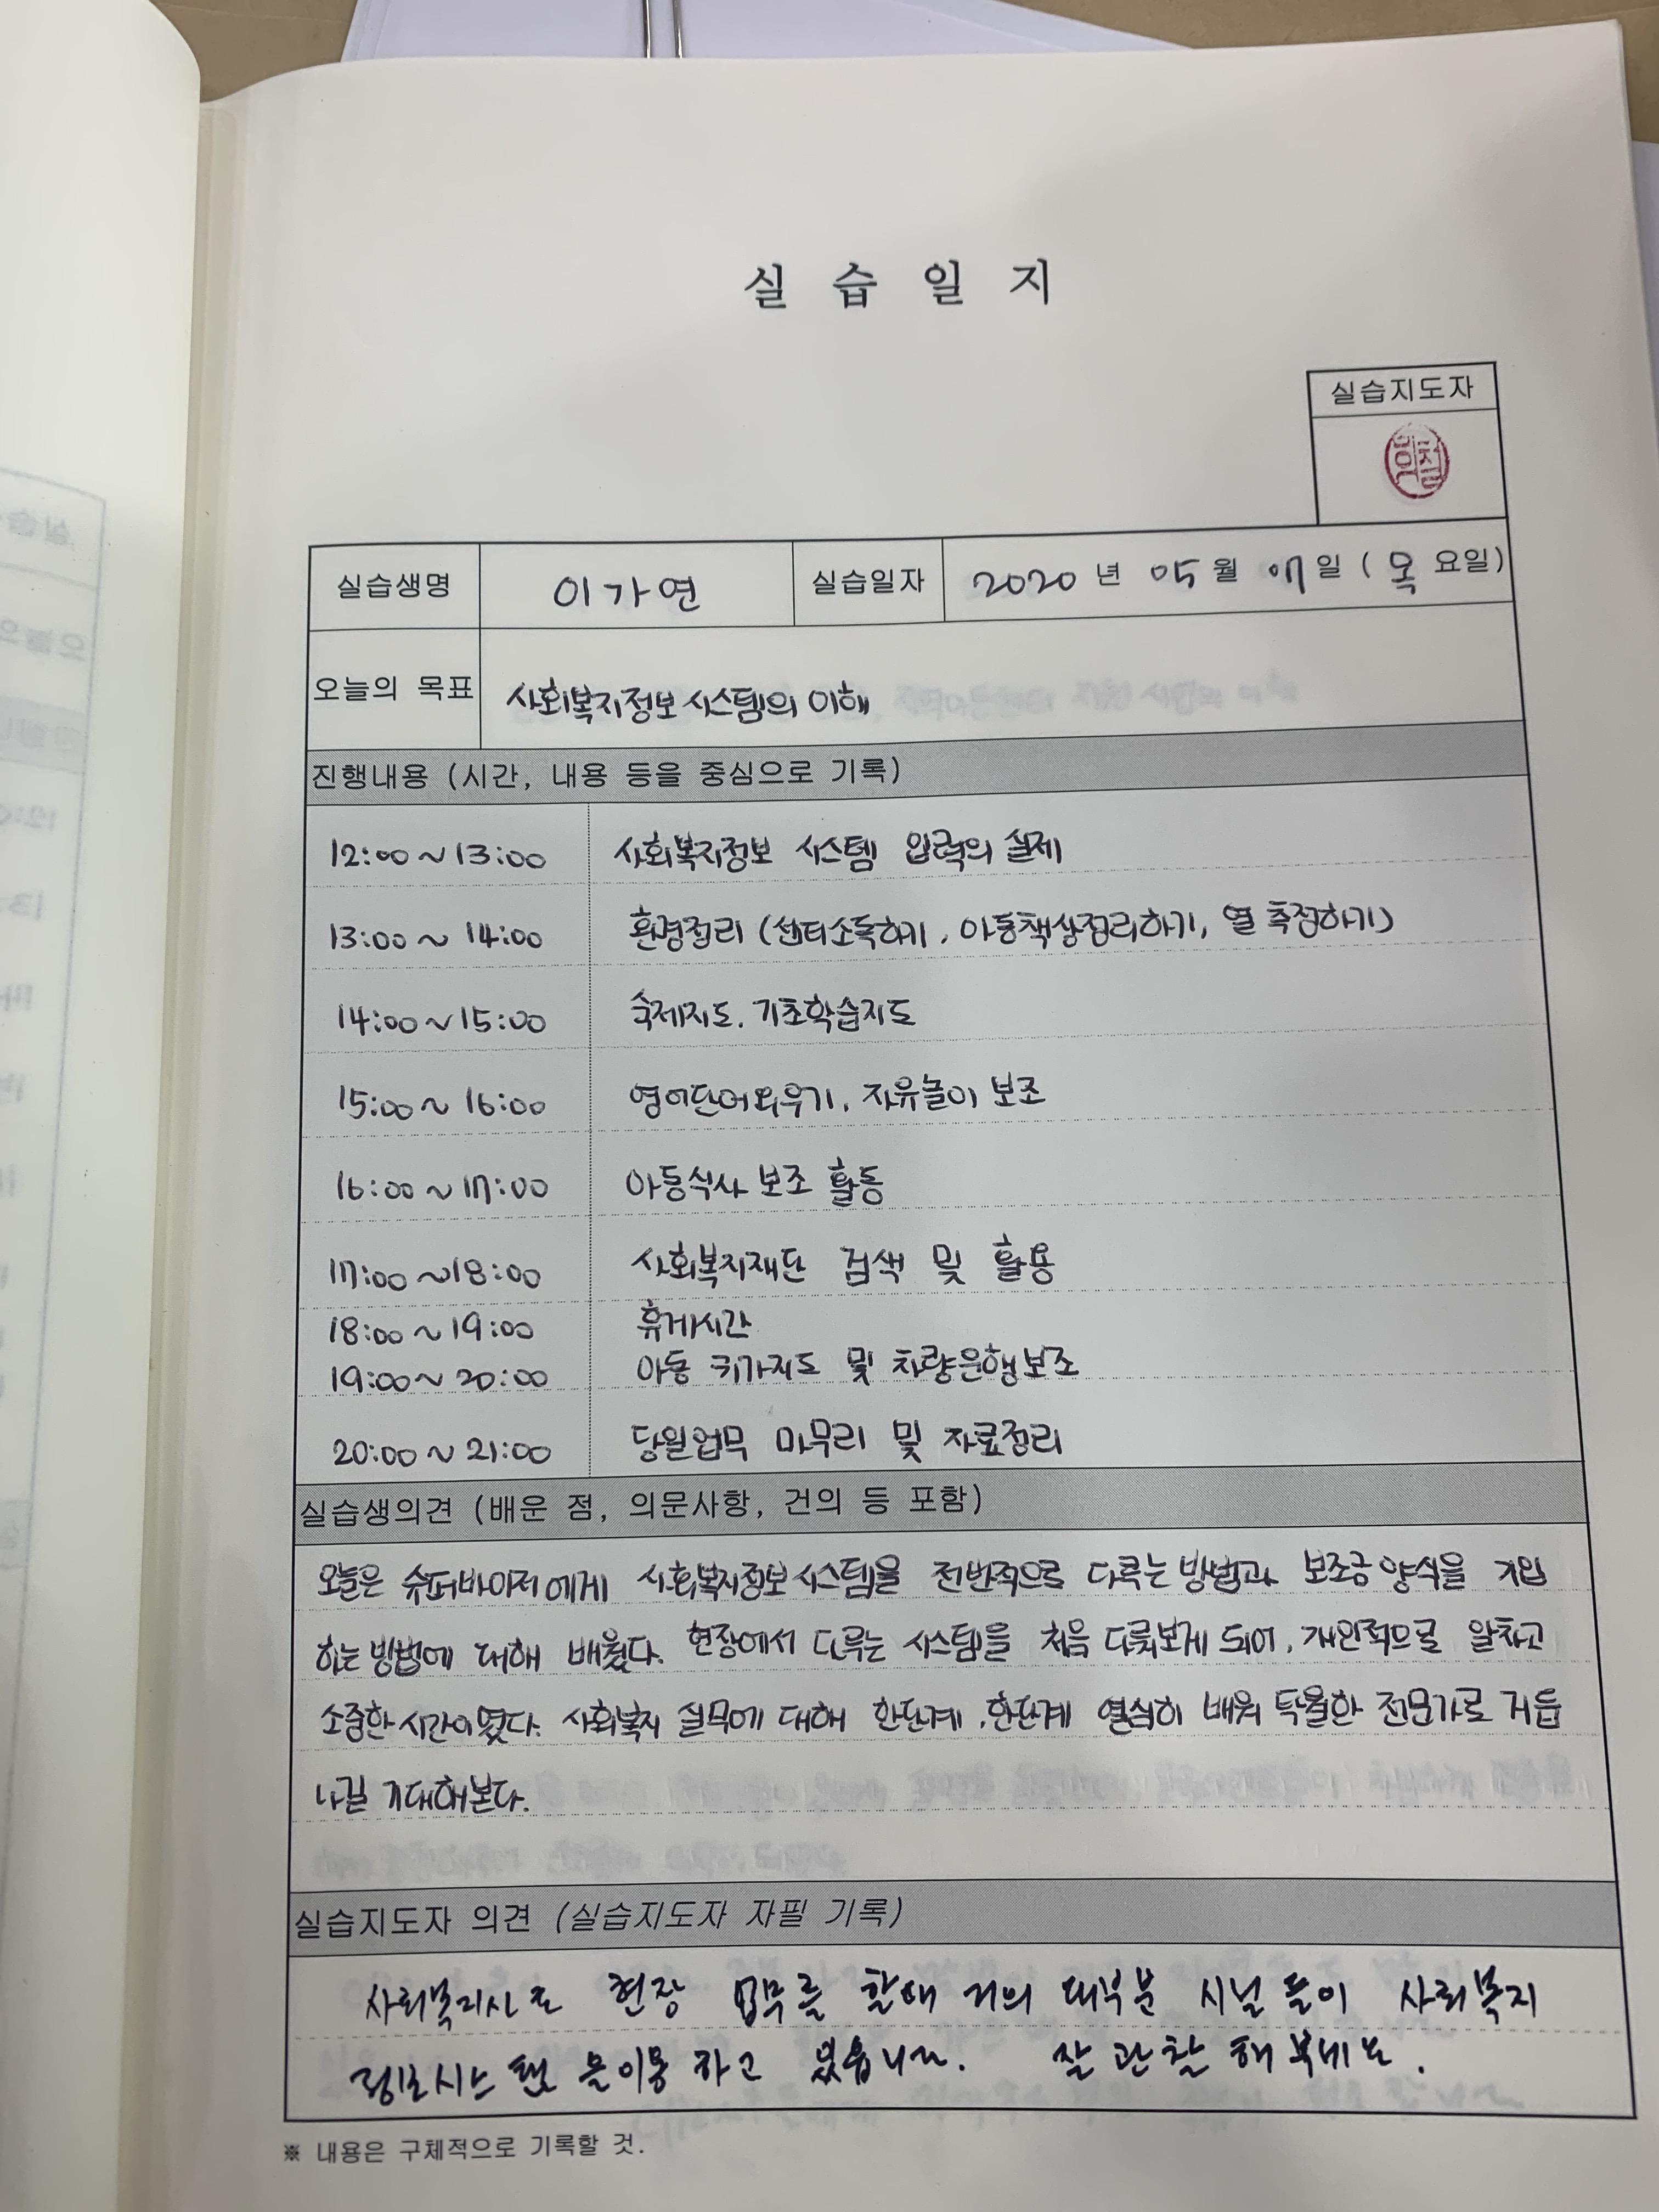 실 습 일 지
실습지도자
실습생명 이가연 실습일자 2020 년 05 월 07 일 ( 목 요일)
오늘의 목표 사회복지정보 시스템의 이해
진행내용 (시간, 내용 등을 중심으로 기록)
12:00 ~ 13:00 사회복지정보 시스템 입력의 실제
13:00 ~ 14:00 환경정리 (센터소독하기, 아동책상정리하기, 열 측정하기)
14:00 ~ 15:00 숙제지도, 기초학습지도
15:00 ~ 16:00 영어단어외우기, 자유놀이 보조
16:00 ~ 17:00 아동식사 보조 활동
17:00 ~ 18:00 사회복지재단 검색 및 활용
18:00 ~ 19:00 휴게시간
19:00 ~ 20:00 아동 귀가지도 및 차량운행보조
20:00 ~ 21:00 당일업무 마무리 및 자료정리
실습생의견 (배운 점, 의문사항, 건의 등 포함)
오늘은 슈퍼바이저에게 사회복지정보시스템을 전반적으로 다루는 방법과 보조금 양식을 기입
하는 방법에 대해 배웠다. 현장에서 다루는 시스템을 처음 다뤄보게 되어, 개인적으로 알차고
소중한 시간이였다. 사회복지 실무에 대해 한단계, 한단계 열심히 배워 탁월한 전문가로 거듭
나길 기대해본다.
실습지도자 의견 (실습지도자 자필 기록)
사회복지사로 현장 업무를 할때 거의 대부분 시설 들이 사회복지
정보시스템 을이용 하고 있습니다. 잘 관찰 해 보세요.
※ 내용은 구체적으로 기록할 것.